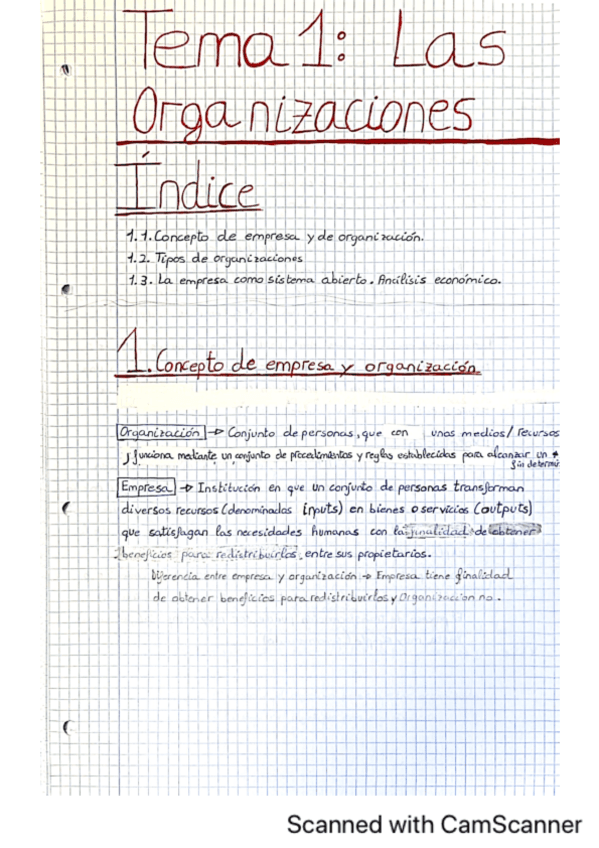 Tema 1: Las
Organizaciones
Índice
1.1. Concepto de empresa y de organización.
1.2. Tipos de organizaciones
1.3. La empresa como sistema abierto. Análisis económico.
1. Concepto de empresa y organización
Organización → Conjunto de personas, que con unos medios/recursos
y funciona mediante un conjunto de procedimientos y reglas establecidas para alcanzar un
fin determi
Empresa → Institución en que un conjunto de personas transforman
diversos recursos (denominados inputs) en bienes o servicios (outputs)
que satisfagan las necesidades humanas con la finalidad de obtener
beneficios para redistribuirlos, entre sus propietarios.
Diferencia entre empresa y organización → Empresa tiene finalidad
de obtener beneficios para redistribuirlos y Organización no.
Scanned with CamScanner